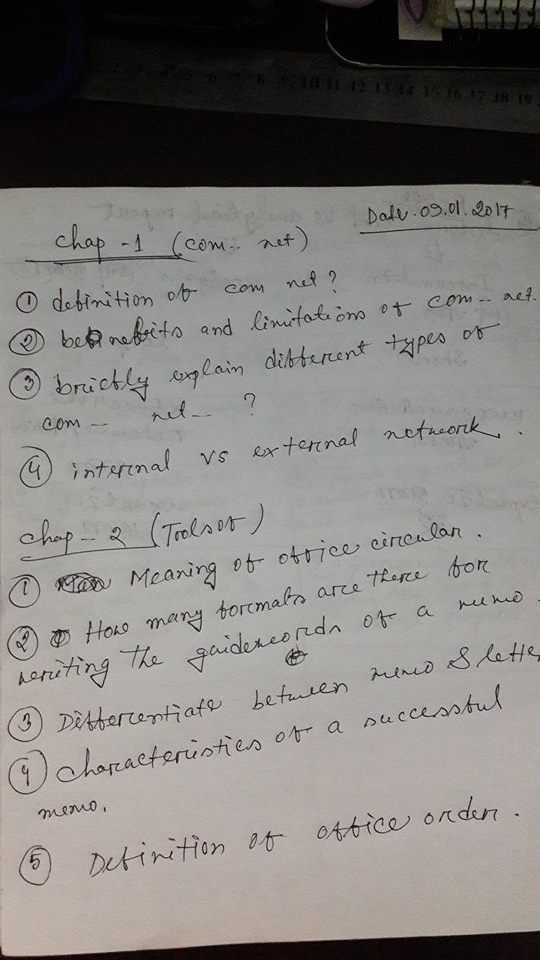 Date. 09.01.2017
Chap - 1 (com- net)
① definition of com net?
② benefits and limitations of com- net.
③ briefly explain different types of
com- net- ?
④ internal vs external network.
Chap - 2 (Tools of)
① Meaning of office circular.
② How many formats are there for
writing the guidewords of a memo.
③ Differentiate between memo & letter
④ Characteristics of a successful
memo.
⑤ Definition of office order.